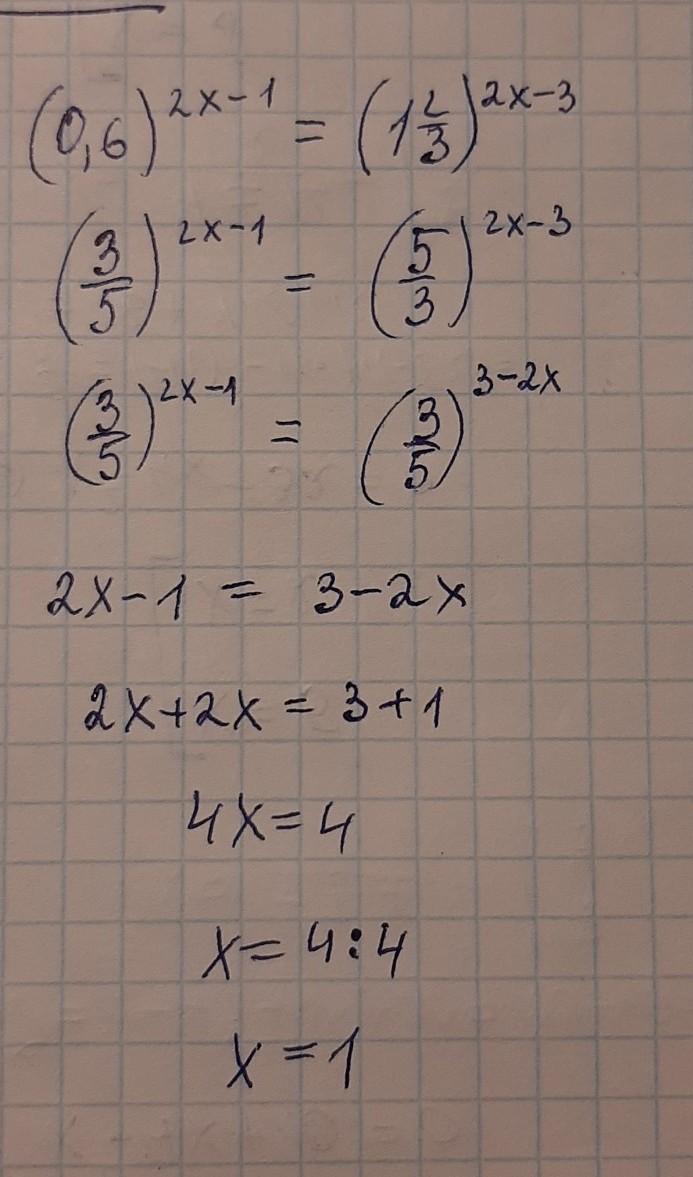 (0,6)^{2x-1} = (1\frac{2}{3})^{2x-3}
(\frac{3}{5})^{2x-1} = (\frac{5}{3})^{2x-3}
(\frac{3}{5})^{2x-1} = (\frac{3}{5})^{3-2x}
2x-1 = 3-2x
2x+2x = 3+1
4x=4
x=4:4
x=1